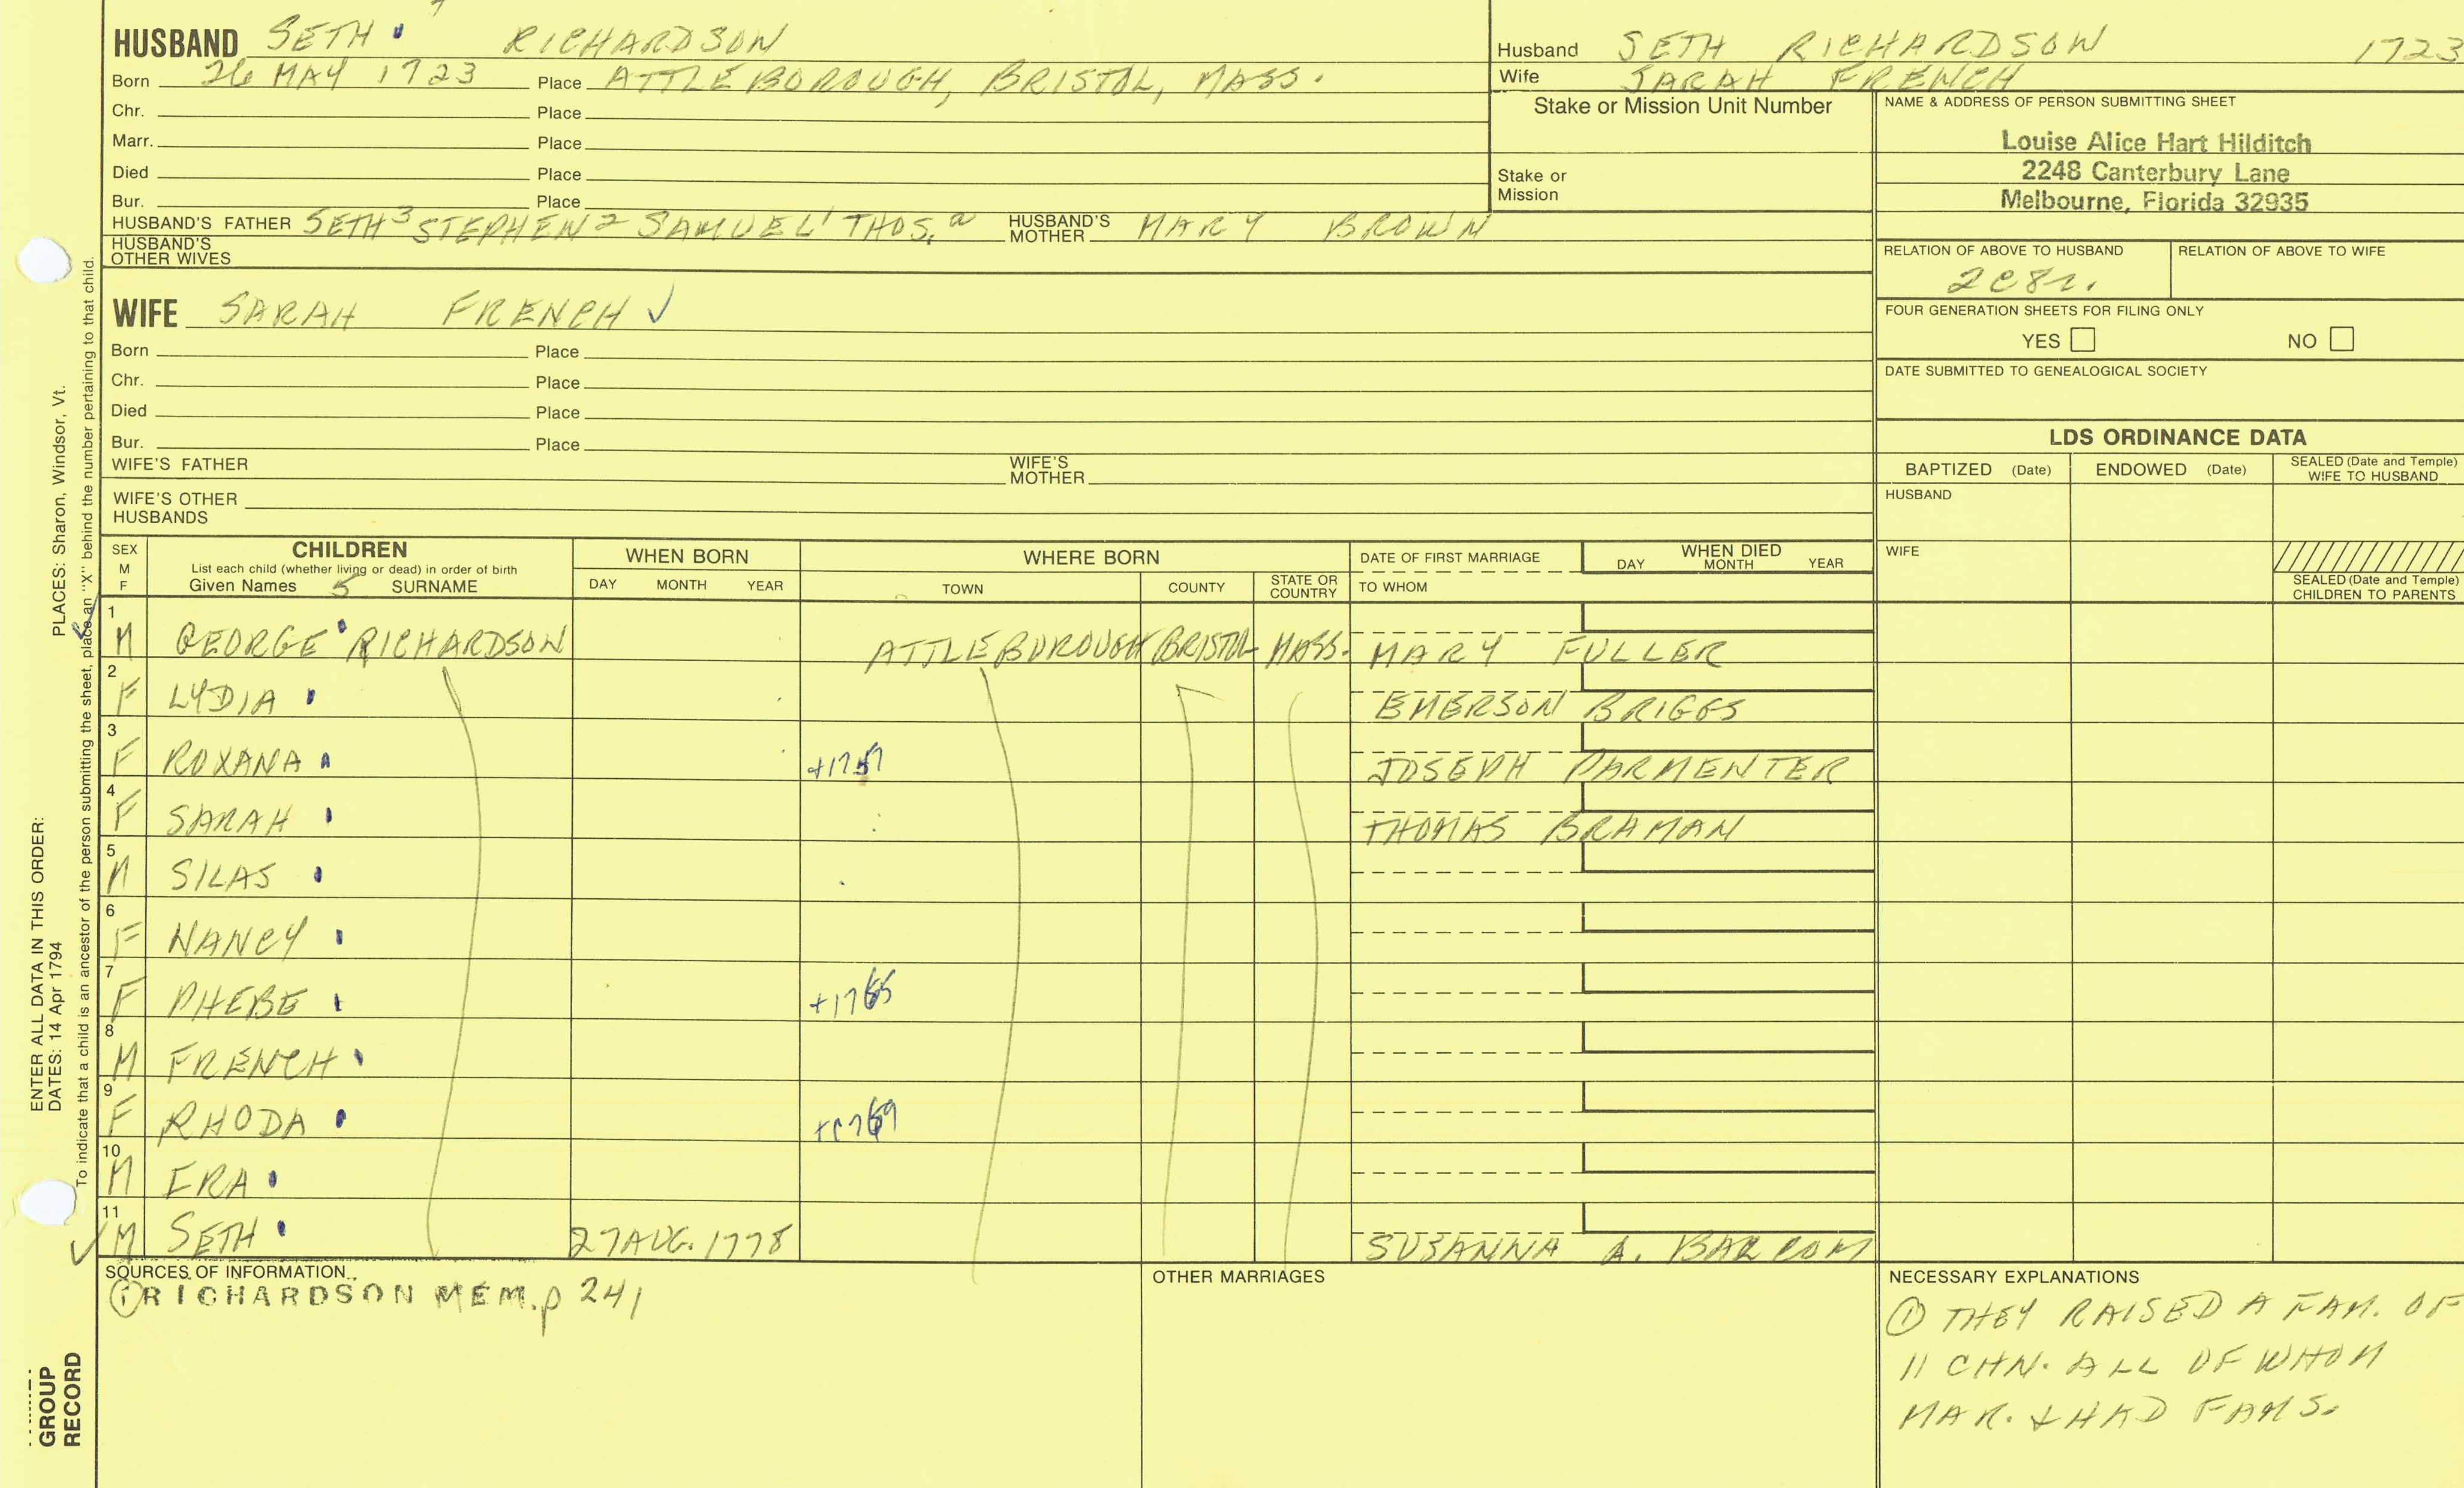 HUSBAND SETH RICHARDSON
Born 26 MAY 1723 Place ATTLEBOROUGH, BRISTOL, MASS.
Chr. Place
Marr. Place
Died Place
Bur. Place
HUSBAND'S FATHER SETH 3 STEPHEN 2 SAMUEL 1 THOS. a HUSBAND'S MOTHER MARY BROWN
HUSBAND'S OTHER WIVES
Husband SETH RICHARDSON 1723
Wife SARAH FRENCH
Stake or Mission Unit Number
Stake or
Mission
NAME & ADDRESS OF PERSON SUBMITTING SHEET
Louise Alice Hart Hilditch
2248 Canterbury Lane
Melbourne, Florida 32935
RELATION OF ABOVE TO HUSBAND RELATION OF ABOVE TO WIFE
2C8r.
FOUR GENERATION SHEETS FOR FILING ONLY
YES NO
DATE SUBMITTED TO GENEALOGICAL SOCIETY
WIFE SARAH FRENCH ✓
Born Place
Chr. Place
Died Place
Bur. Place
WIFE'S FATHER WIFE'S MOTHER
WIFE'S OTHER
HUSBANDS
LDS ORDINANCE DATA
BAPTIZED (Date) ENDOWED (Date) SEALED (Date and Temple) WIFE TO HUSBAND
HUSBAND
WIFE
SEALED (Date and Temple) CHILDREN TO PARENTS
SEX M F CHILDREN WHEN BORN WHERE BORN DATE OF FIRST MARRIAGE WHEN DIED
List each child (whether living or dead) in order of birth
Given Names 5 SURNAME DAY MONTH YEAR TOWN COUNTY STATE OR COUNTRY TO WHOM DAY MONTH YEAR
1 M GEORGE RICHARDSON ATTLEBOROUGH BRISTOL MASS. MARY FULLER
2 F LYDIA EMERSON BRIGGS
3 F ROXANA +1757 JOSEPH PARMENTER
4 F SARAH THOMAS BRAMAN
5 M SILAS
6 F NANCY
7 F PHEBE +1765
8 M FRENCH
9 F RHODA +1769
10 M IRA
11 M SETH 27 AUG. 1778 SUSANNA A. BARCOM
SOURCES OF INFORMATION
① RICHARDSON MEM. p 241
OTHER MARRIAGES
NECESSARY EXPLANATIONS
① THEY RAISED A FAM. OF
11 CHN. ALL OF WHOM
MAR. & HAD FAMS.
PLACES: Sharon, Windsor, Vt.
To indicate that a child is an ancestor of the person submitting the sheet, place an "X" behind the number pertaining to that child.
ENTER ALL DATA IN THIS ORDER:
DATES: 14 Apr 1794
GROUP
RECORD